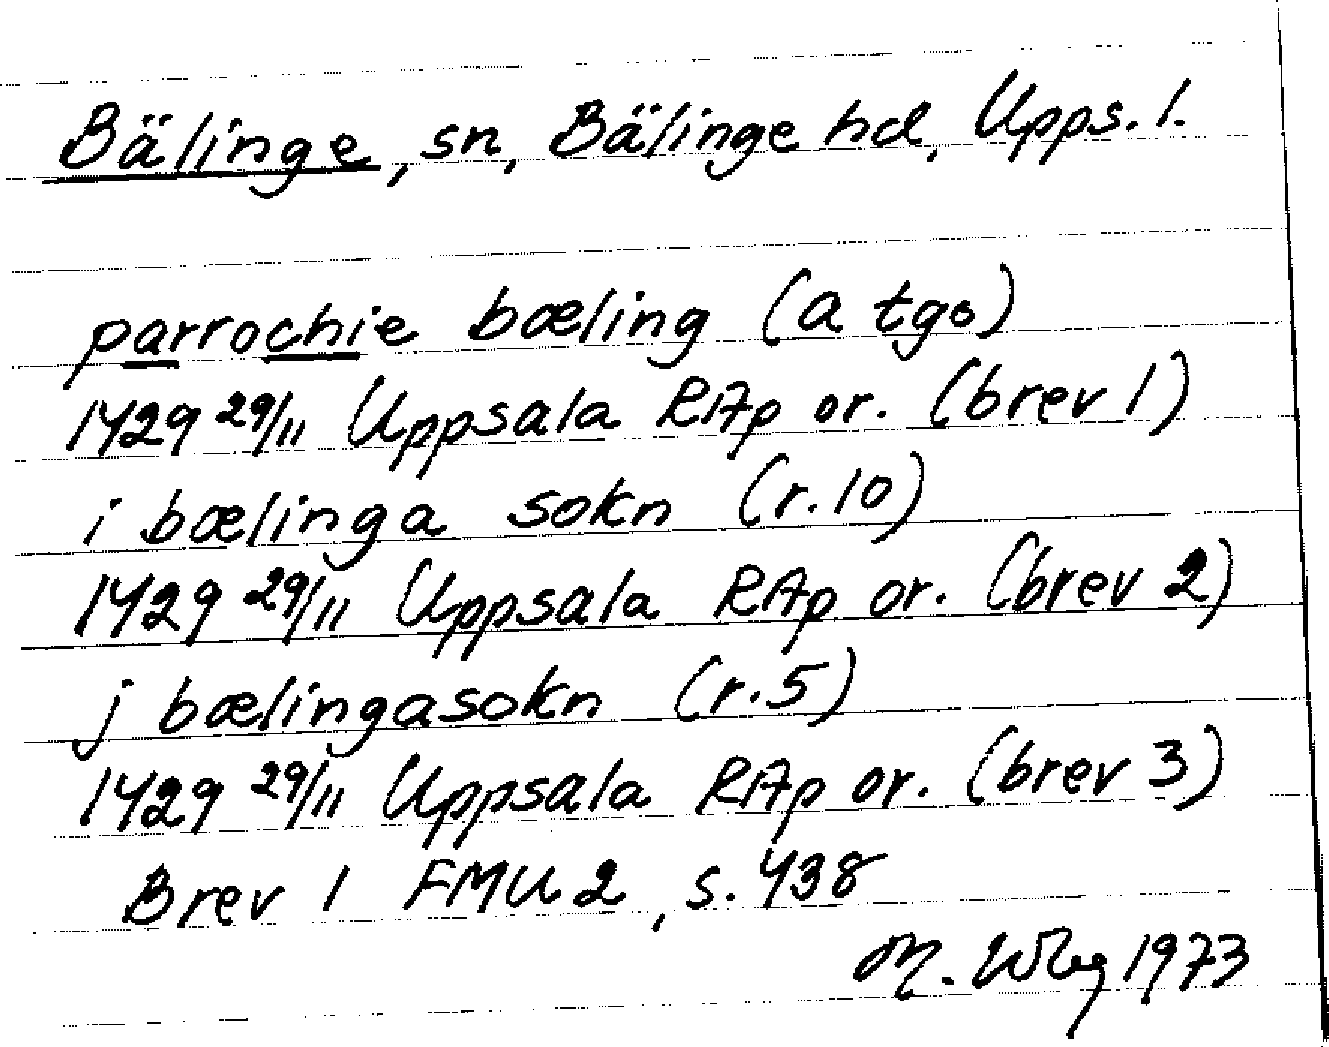 Bälinge, sn, Bälinge hd, Upps. l.
parrochie bæling (a tgo)
1429 29/11 Uppsala RAp or. (brev 1)
i bælinga sokn (r. 10)
1429 29/11 Uppsala RAp or. (brev 2)
j bælingasokn (r. 5)
1429 29/11 Uppsala RAp or. (brev 3)
Brev 1 FMU 2, s. 438
M. Wbg 1973